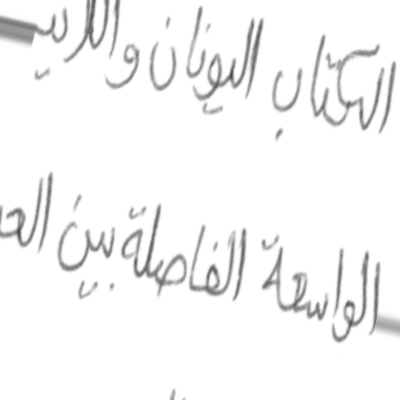 الكتاب اليونان واللاتيـ
الواسعة الفاصلة بين الحـ